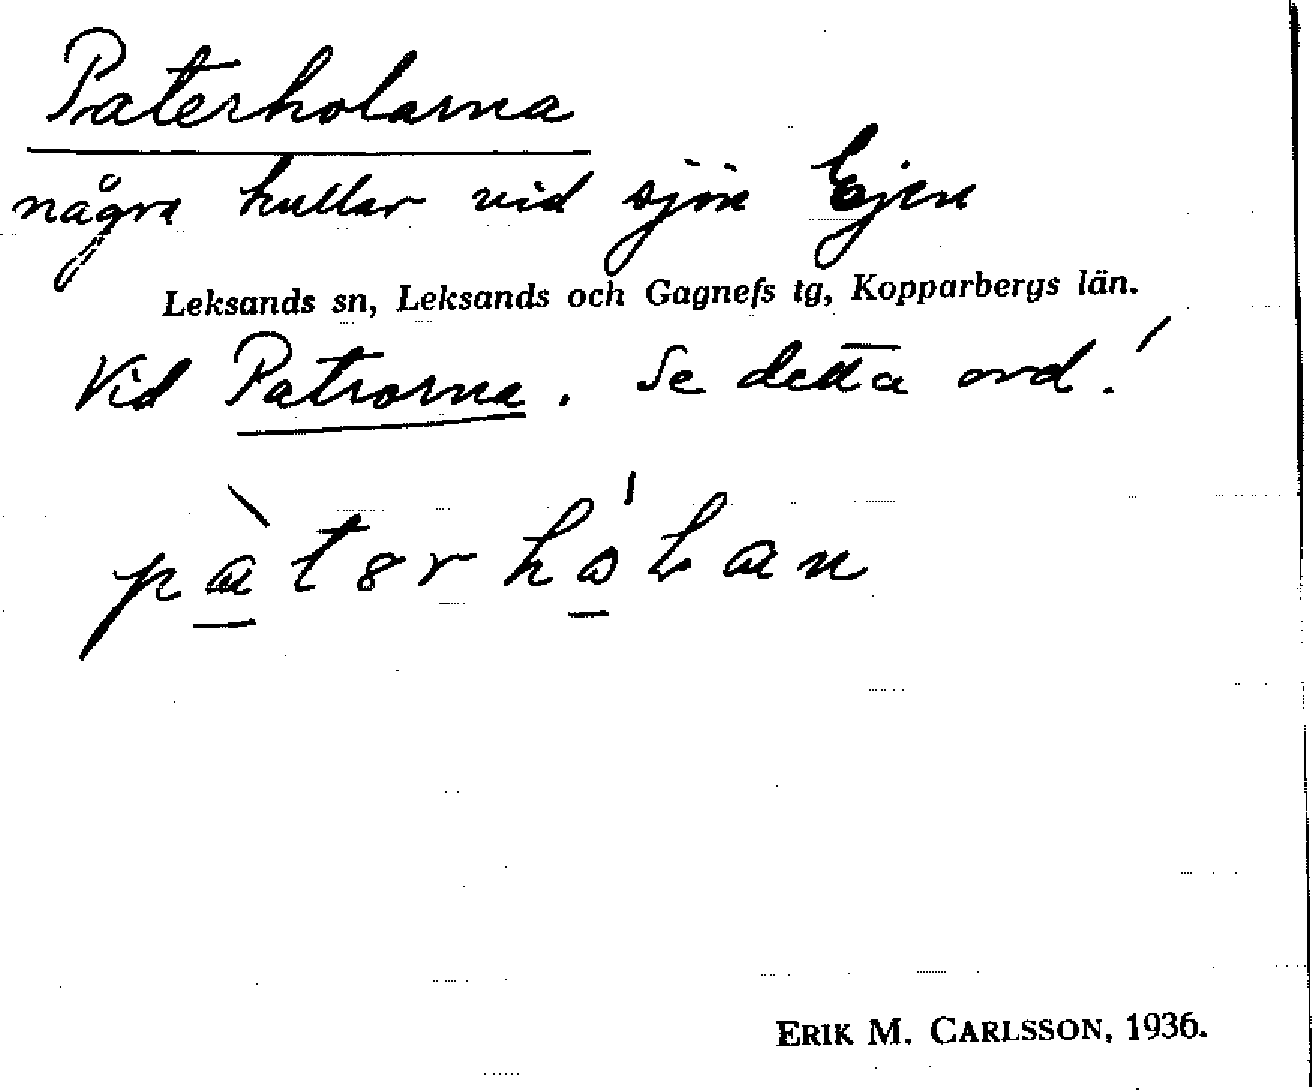 Paterholarna
några kullar vid sjön Ejen
Leksands sn, Leksands och Gagnefs tg, Kopparbergs län.
Vid Patrorna. Se detta ord!
ERIK M. CARLSSON, 1936.